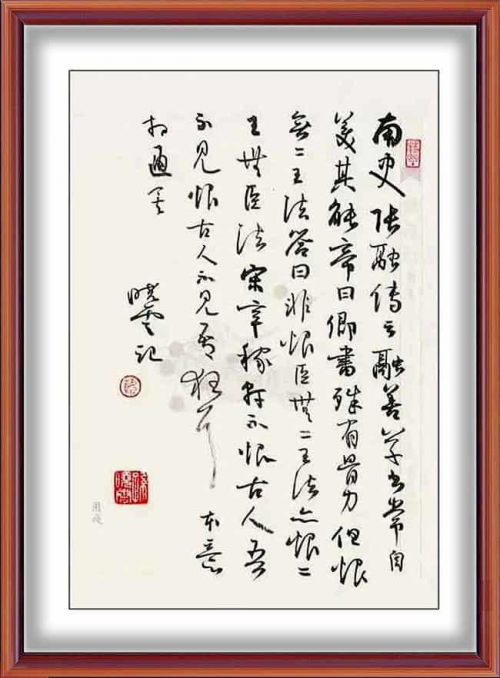 南史张融传云融善草书常自
美其能帝曰卿書殊有骨力但恨
無二王法答曰非恨臣無二王法亦恨二
王無臣法宋辛稼轩不恨古人吾
不见恨古人不见吾狂耳本意
相通矣
晓云记